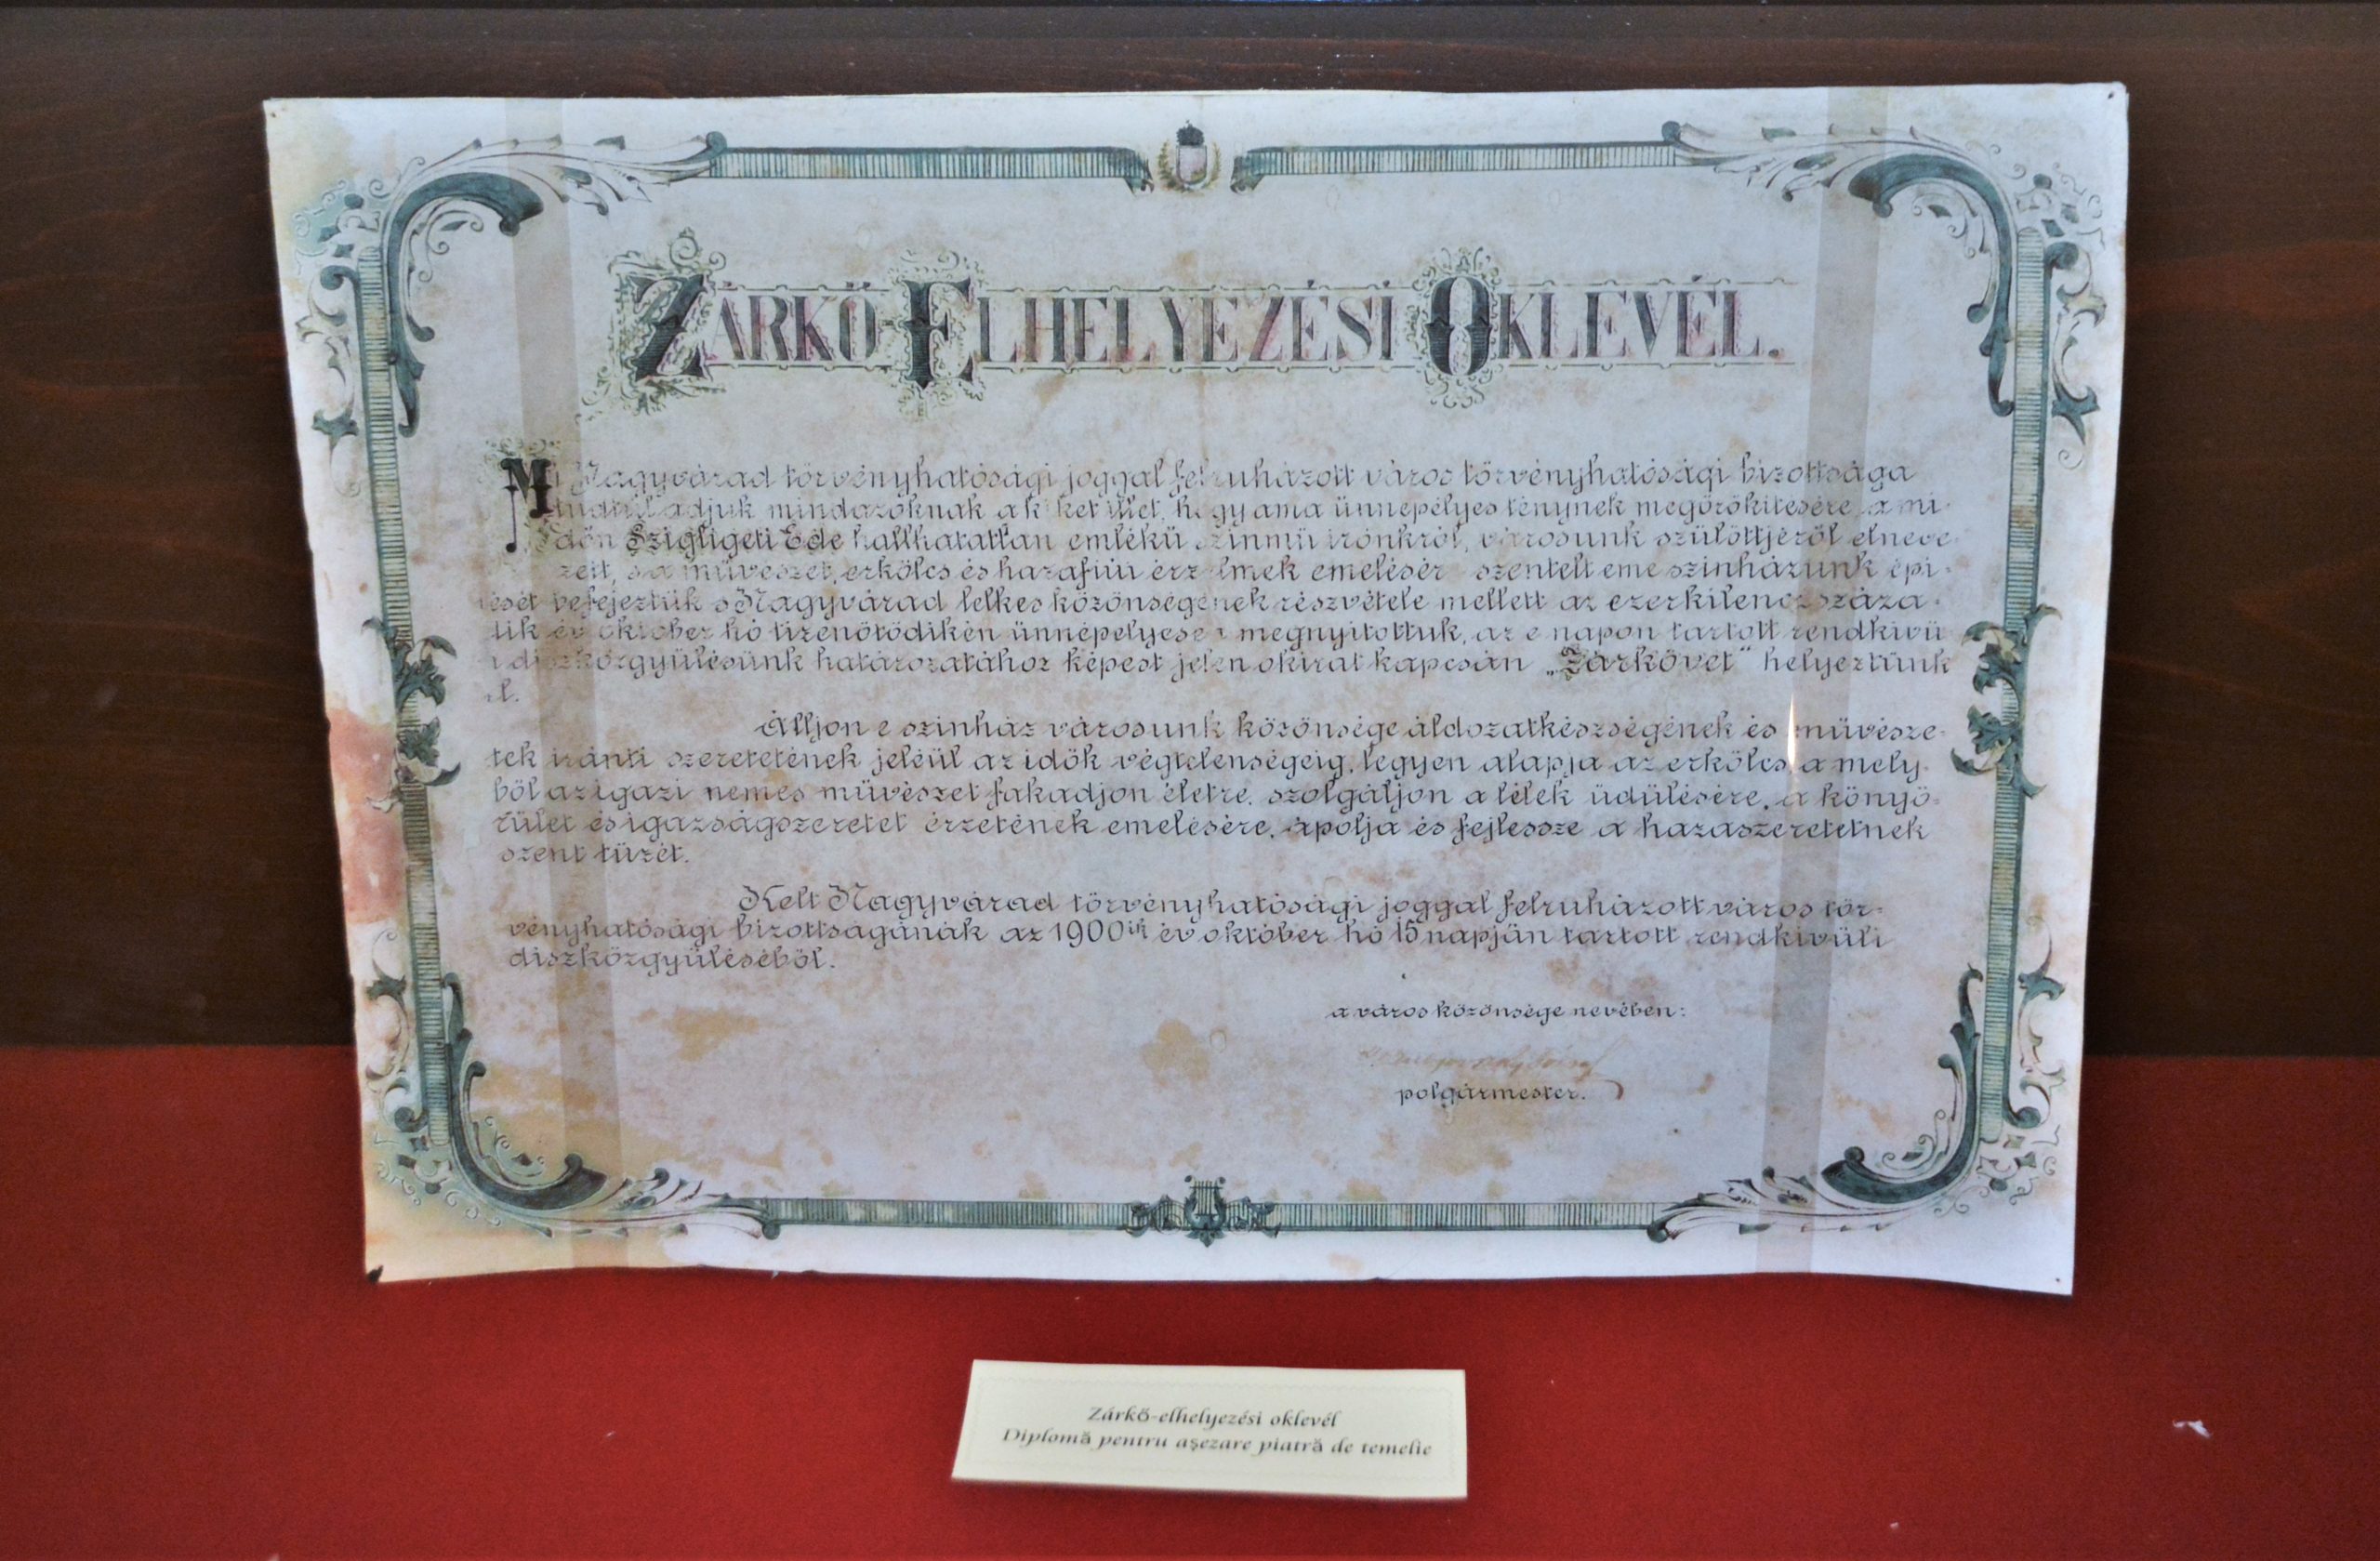 ZÁRKŐ-ELHELYEZÉSI OKLEVÉL.
Mi Nagyvárad törvényhatósági joggal felruházott város törvényhatósági bizottsága
tudtul adjuk mindazoknak a kiket illet, hogy ama ünnepélyes ténynek megörökitésére, a mi-
dőn Szigligeti Ede hallhatatlan emlékü szinmü irónkról, városunk szülöttjéről elneve-
zett, s a müvészet, erkölcs és hazafiui érzelmek emelésére szentelt eme szinházunk épi-
tését befejeztük s Nagyvárad lelkes közönségének részvétele mellett az ezerkilenczszáza-
dik év október hó tizenötödikén ünnepélyesen megnyitottuk, az e napon tartott rendkivü-
li diszközgyülésünk határozatához képest jelen okirat kapcsán „Zárkövet" helyeztünk
el.
Álljon e szinház városunk közönsége áldozatkészségének és müvésze-
tek iránti szeretetének jeléül az idők végtelenségeig, legyen alapja az erkölcs, a mely-
ből az igazi nemes müvészet fakadjon életre, szolgáljon a lélek üdülésére, a könyö-
rület és igazságszeretet érzetének emelésére, ápolja és fejlessze a hazaszeretetnek
szent tüzét.
Kelt Nagyvárad törvényhatósági joggal felruházott város tör-
vényhatósági bizottságának az 1900ik év október hó 15 napján tartott rendkivüli
diszközgyüléséből.
a város közönsége nevében:
polgármester.
Zárkő-elhelyezési oklevél
Diplomă pentru așezare piatră de temelie